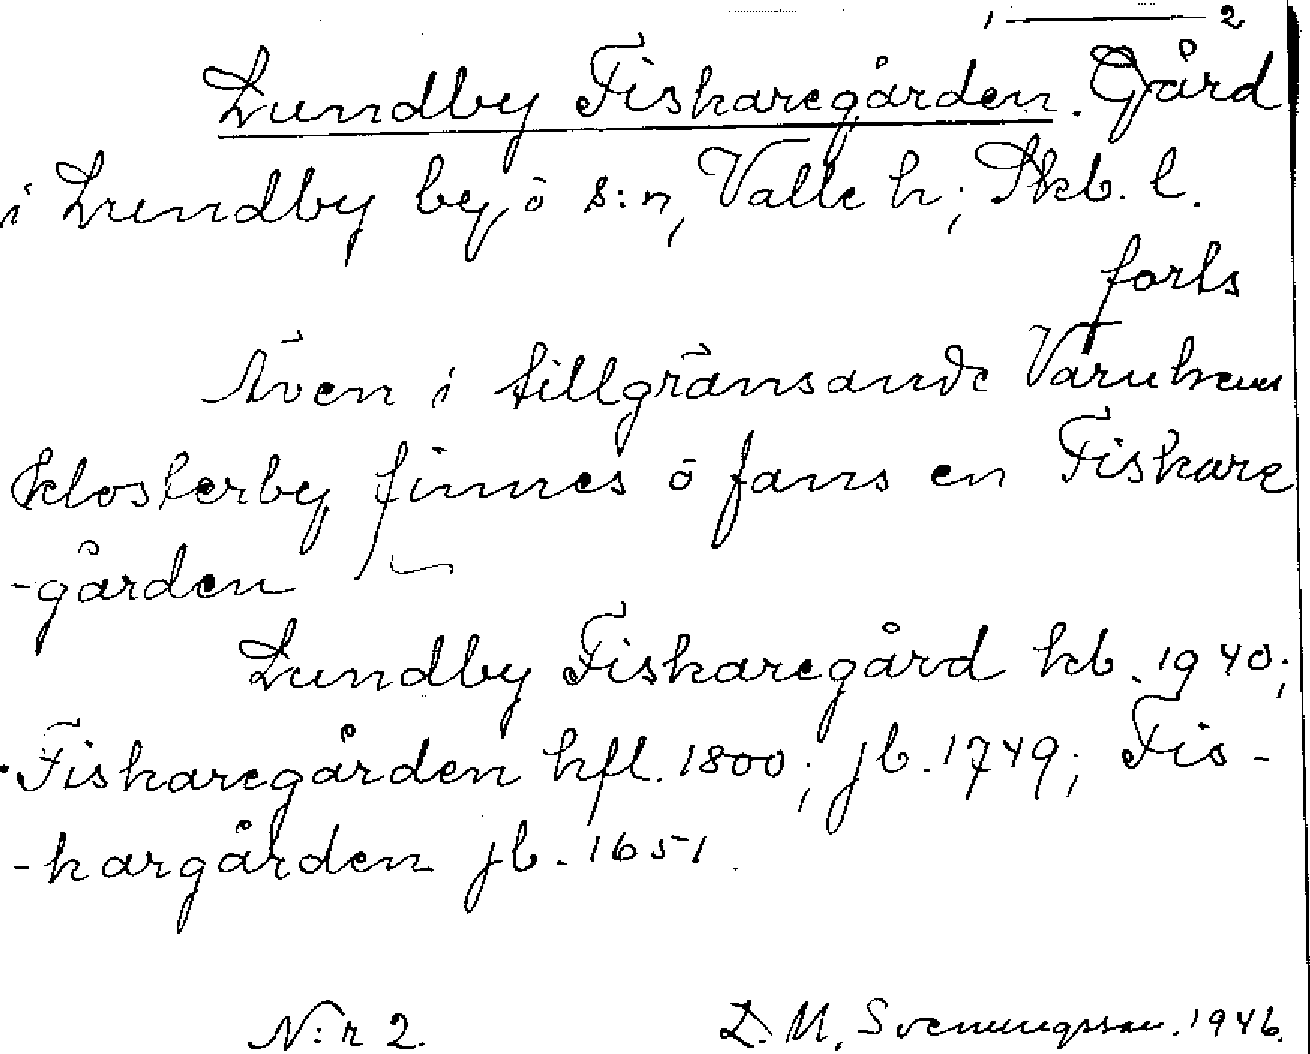 1 — 2
Lundby Fiskaregården. Gård
i Lundby by, ö s:n, Valle h; Skb. l.
forts
Även i tillgränsande Varnhem
klosterby finnes o fans en Fiskare
-gården
Lundby Fiskaregård kb. 1940;
Fiskaregården hfl. 1800; jb. 1749; Fis-
-kargården jb. 1651.
N:r 2. L. M. Svenungsson. 1946.